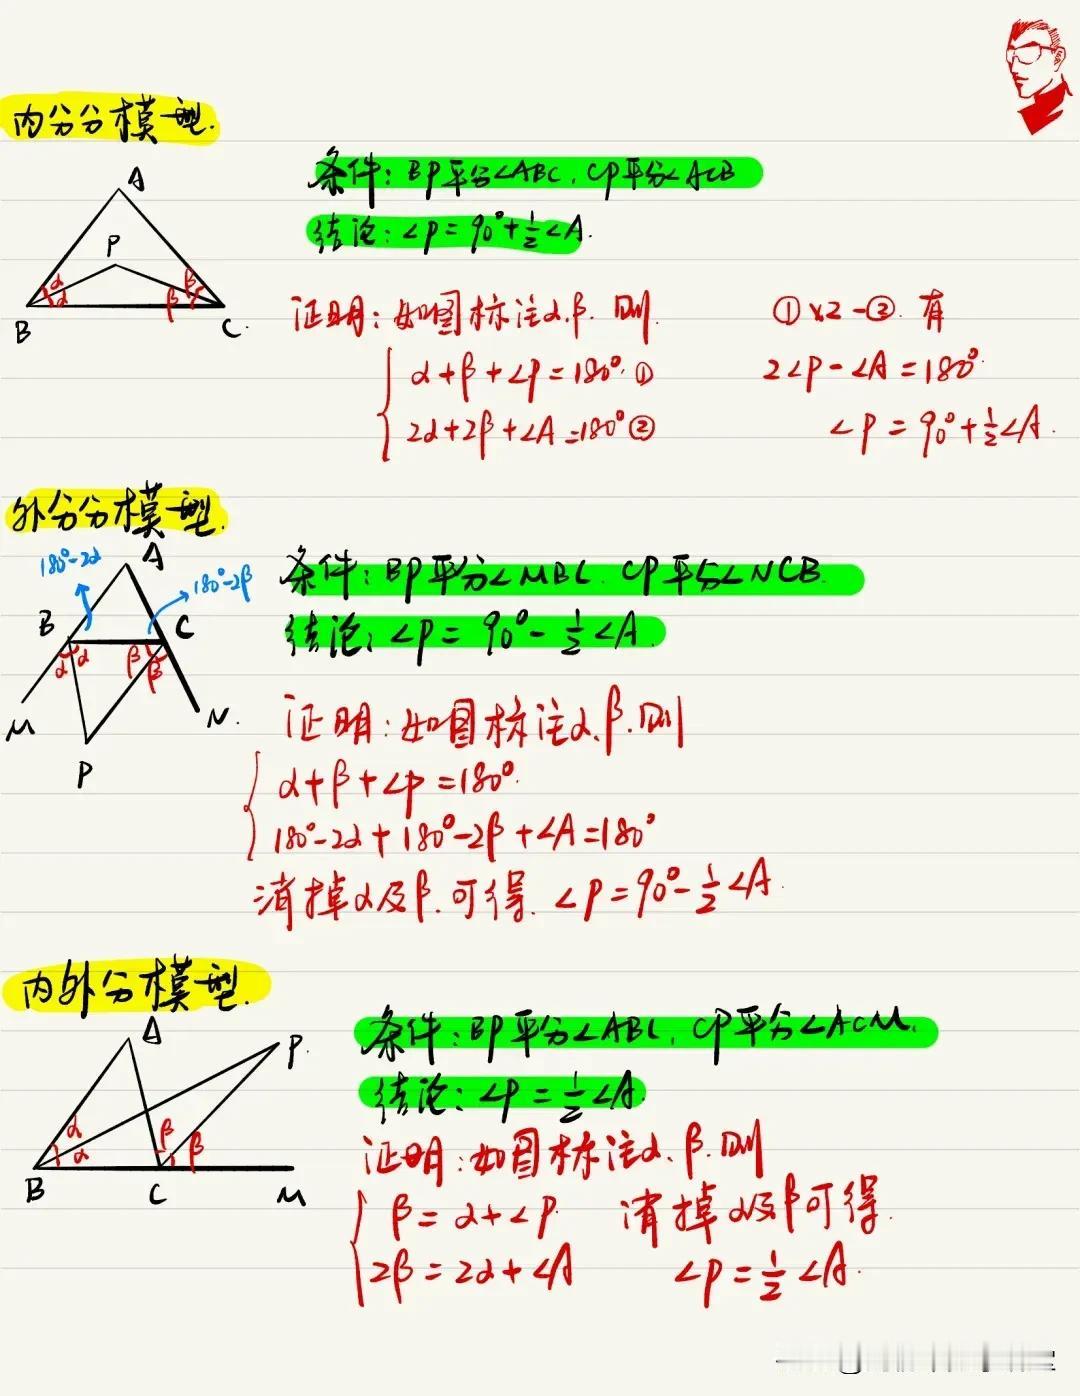 内分分模型.
A
P
α
α
β
β
B
C.
条件:BP平分∠ABC,CP平分∠ACB
结论:∠P=90°+½∠A.
证明:如图标注α.β.则
α+β+∠P=180°.①
2α+2β+∠A=180°②
①×2-②.有
2∠P-∠A=180°.
∠P=90°+½∠A.
外分分模型.
180°-2α
A
180°-2β
B
C
α
α
β
β
M
N.
P
条件:BP平分∠MBC.CP平分∠NCB.
结论:∠P=90°-½∠A.
证明:如图标注α.β.则
α+β+∠P=180°.
180°-2α+180°-2β+∠A=180°
消掉α及β.可得.∠P=90°-½∠A.
内外分模型.
A
P.
α
α
β
β
B
C
M
条件:BP平分∠ABC,CP平分∠ACM.
结论:∠P=½∠A.
证明:如图标注α.β.则
β=α+∠P.
2β=2α+∠A
消掉α及β可得.
∠P=½∠A.